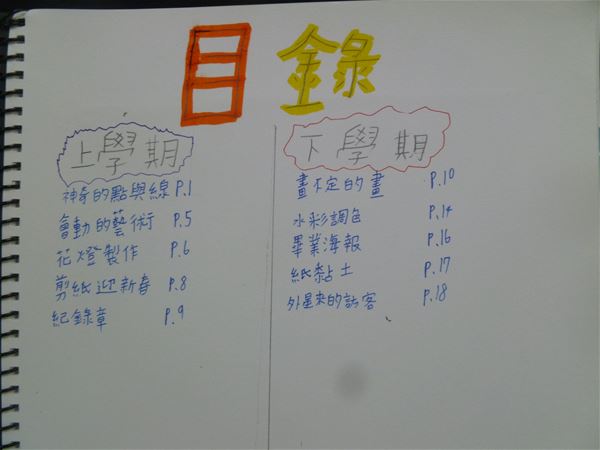 目錄
上學期
神奇的點與線 P.1
會動的藝術 P.5
花燈製作 P.6
剪紙迎新春 P.8
紀錄章 P.9
下學期
畫不定的畫 P.10
水彩調色 P.14
畢業海報 P.16
紙黏土 P.17
外星來的訪客 P.18